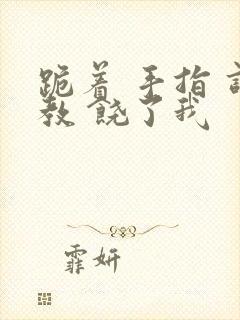 跪着 手指 
教 饶了我
霏妍